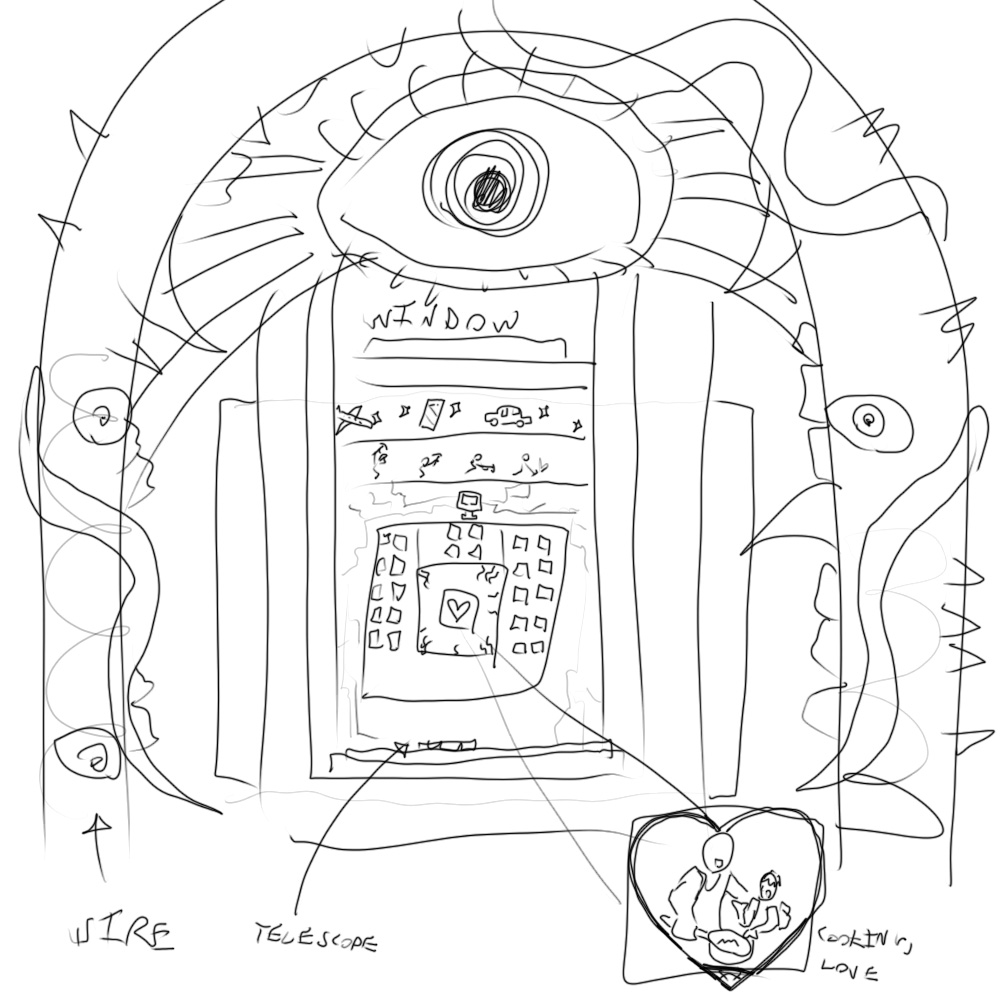 WINDOW
WIRE
TELESCOPE
COOKING,
LOVE